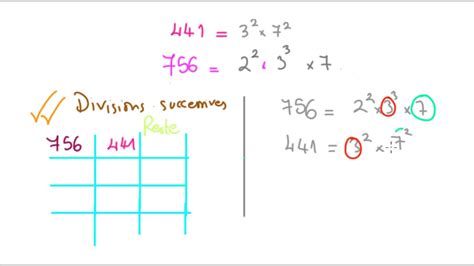 441 = 3² × 7²
756 = 2² × 3³ × 7
Divisions successives
Reste
756 441
756 = 2² × 3³ × 7
441 = 3² × 7²